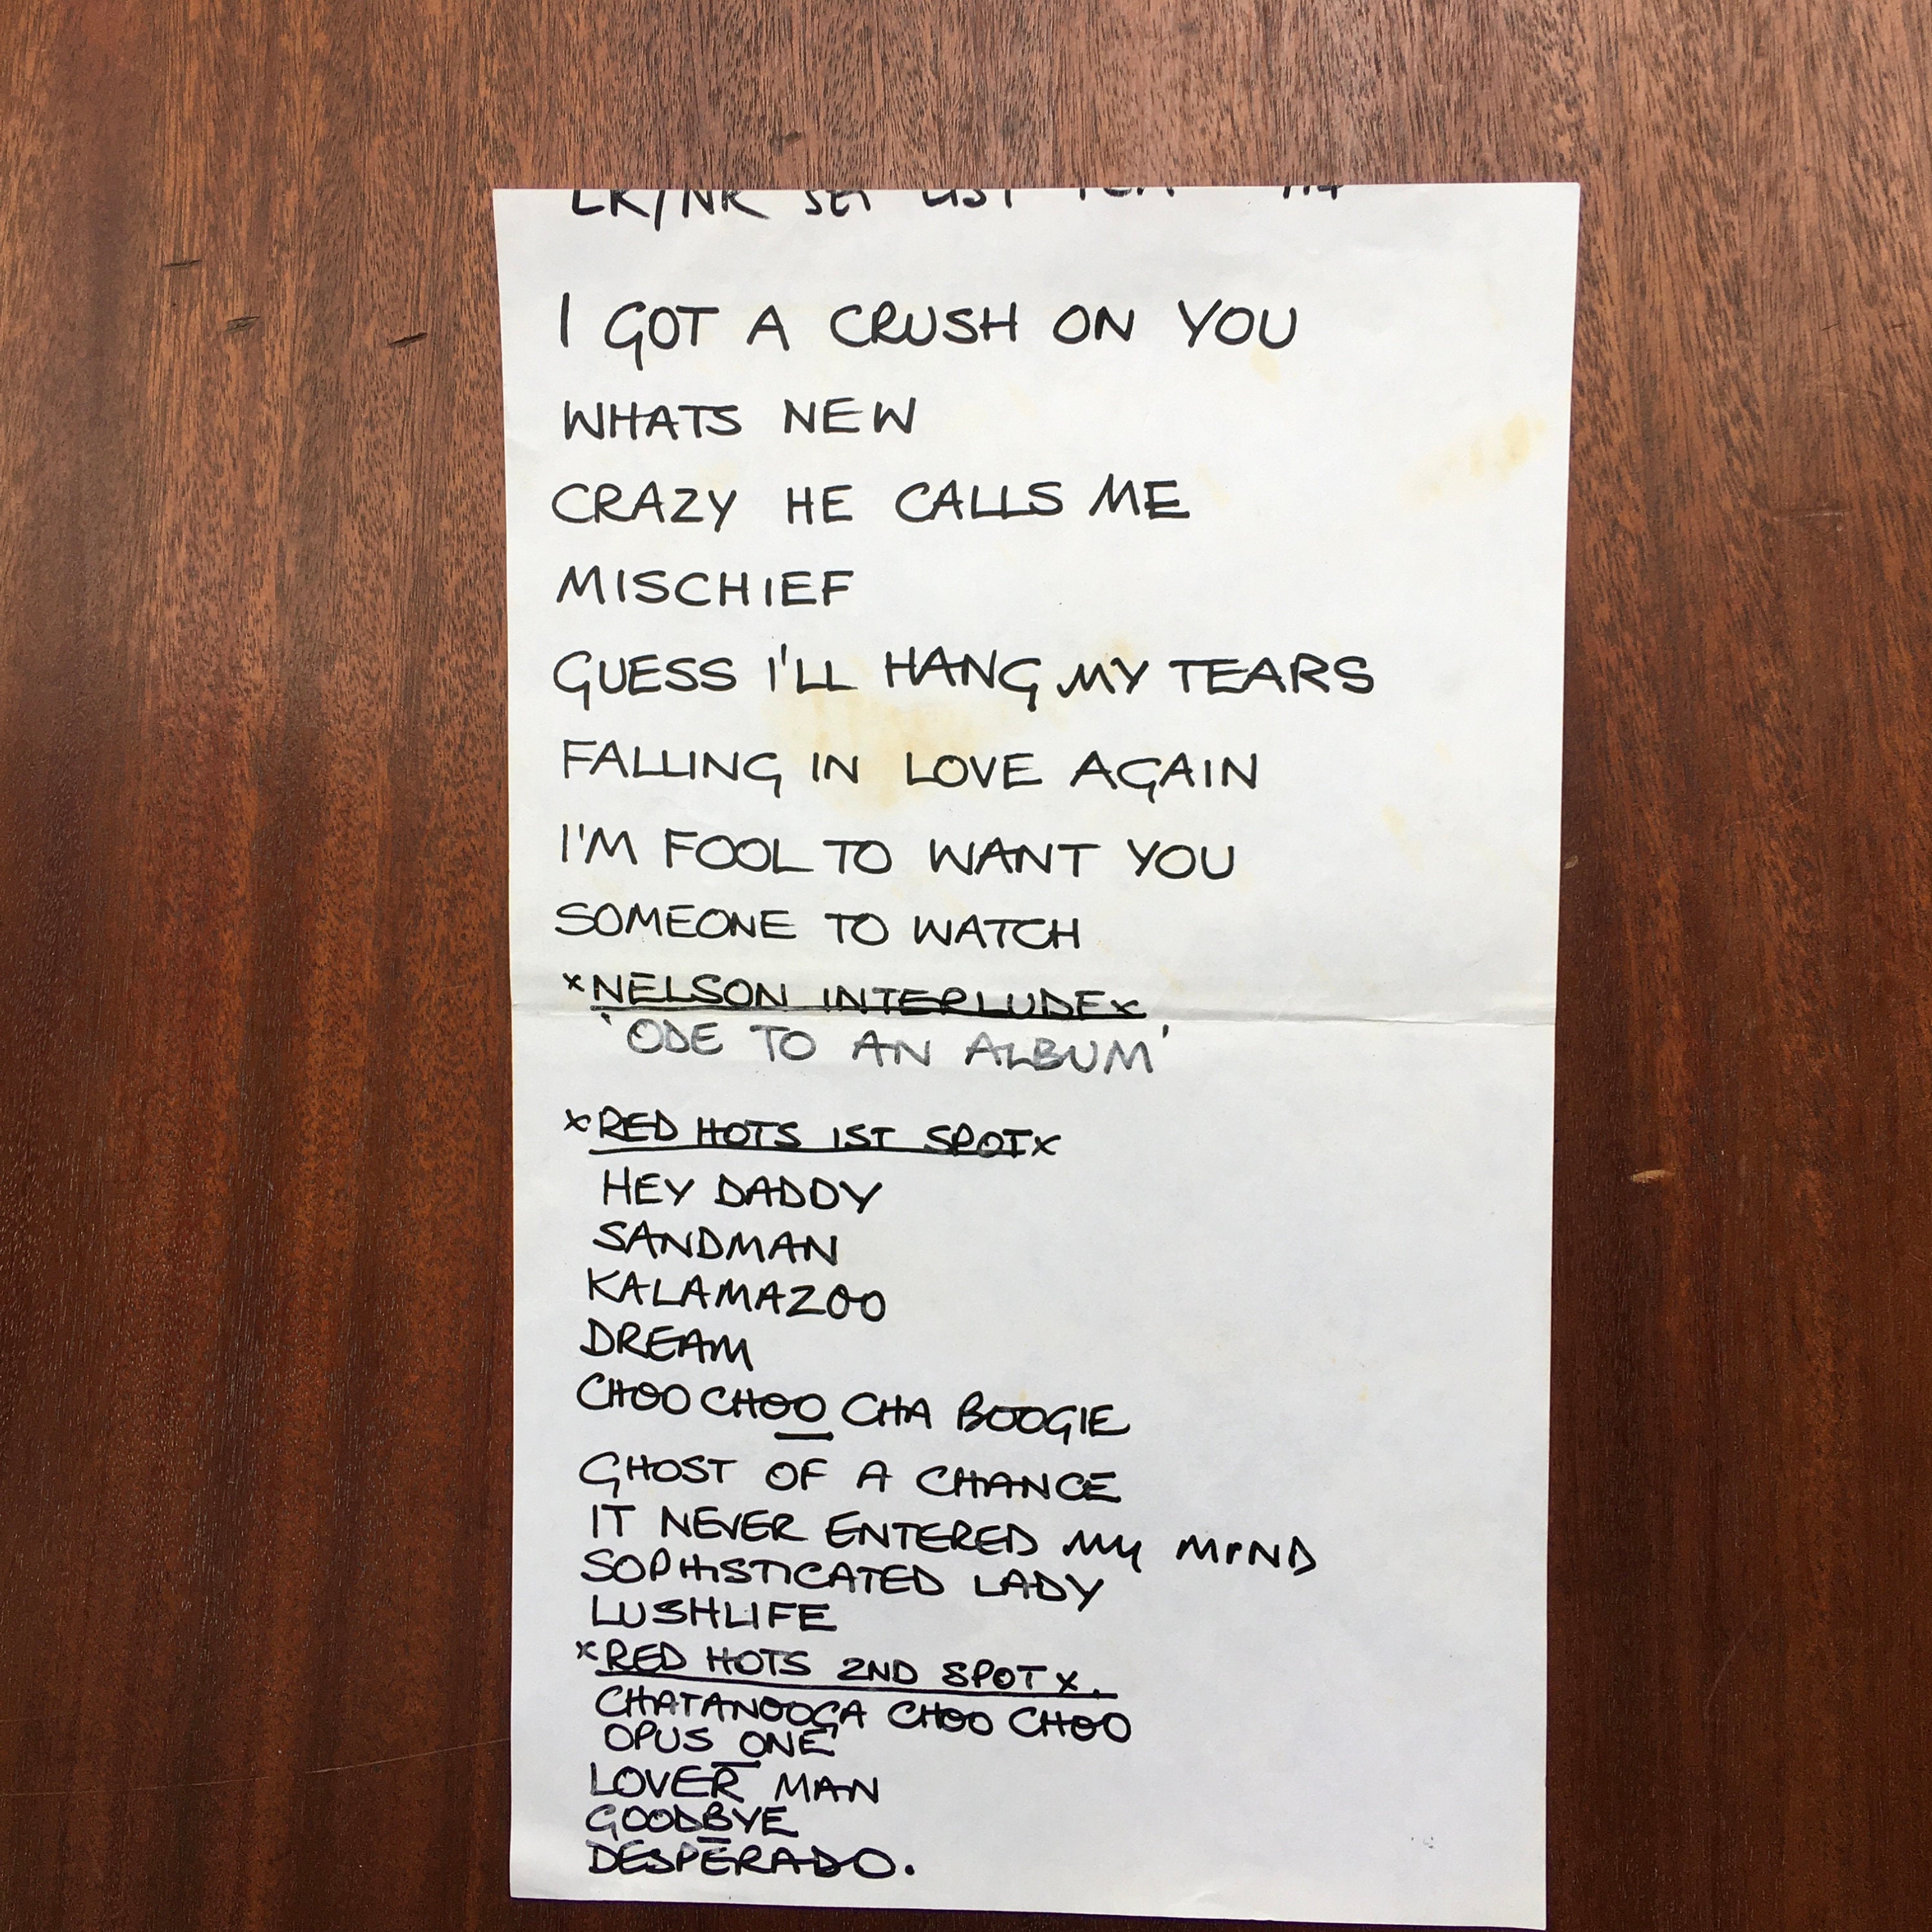 LR/NR SET LIST
I GOT A CRUSH ON YOU
WHATS NEW
CRAZY HE CALLS ME
MISCHIEF
GUESS I'LL HANG MY TEARS
FALLING IN LOVE AGAIN
I'M FOOL TO WANT YOU
SOMEONE TO WATCH
x NELSON INTERLUDE x
'ODE TO AN ALBUM'
x RED HOTS 1ST SPOT x
HEY DADDY
SANDMAN
KALAMAZOO
DREAM
CHOO CHOO CHA BOOGIE
GHOST OF A CHANCE
IT NEVER ENTERED MY MIND
SOPHISTICATED LADY
LUSHLIFE
x RED HOTS 2ND SPOT x.
CHATANOOGA CHOO CHOO
OPUS ONE
LOVER MAN
GOODBYE
DESPERADO.